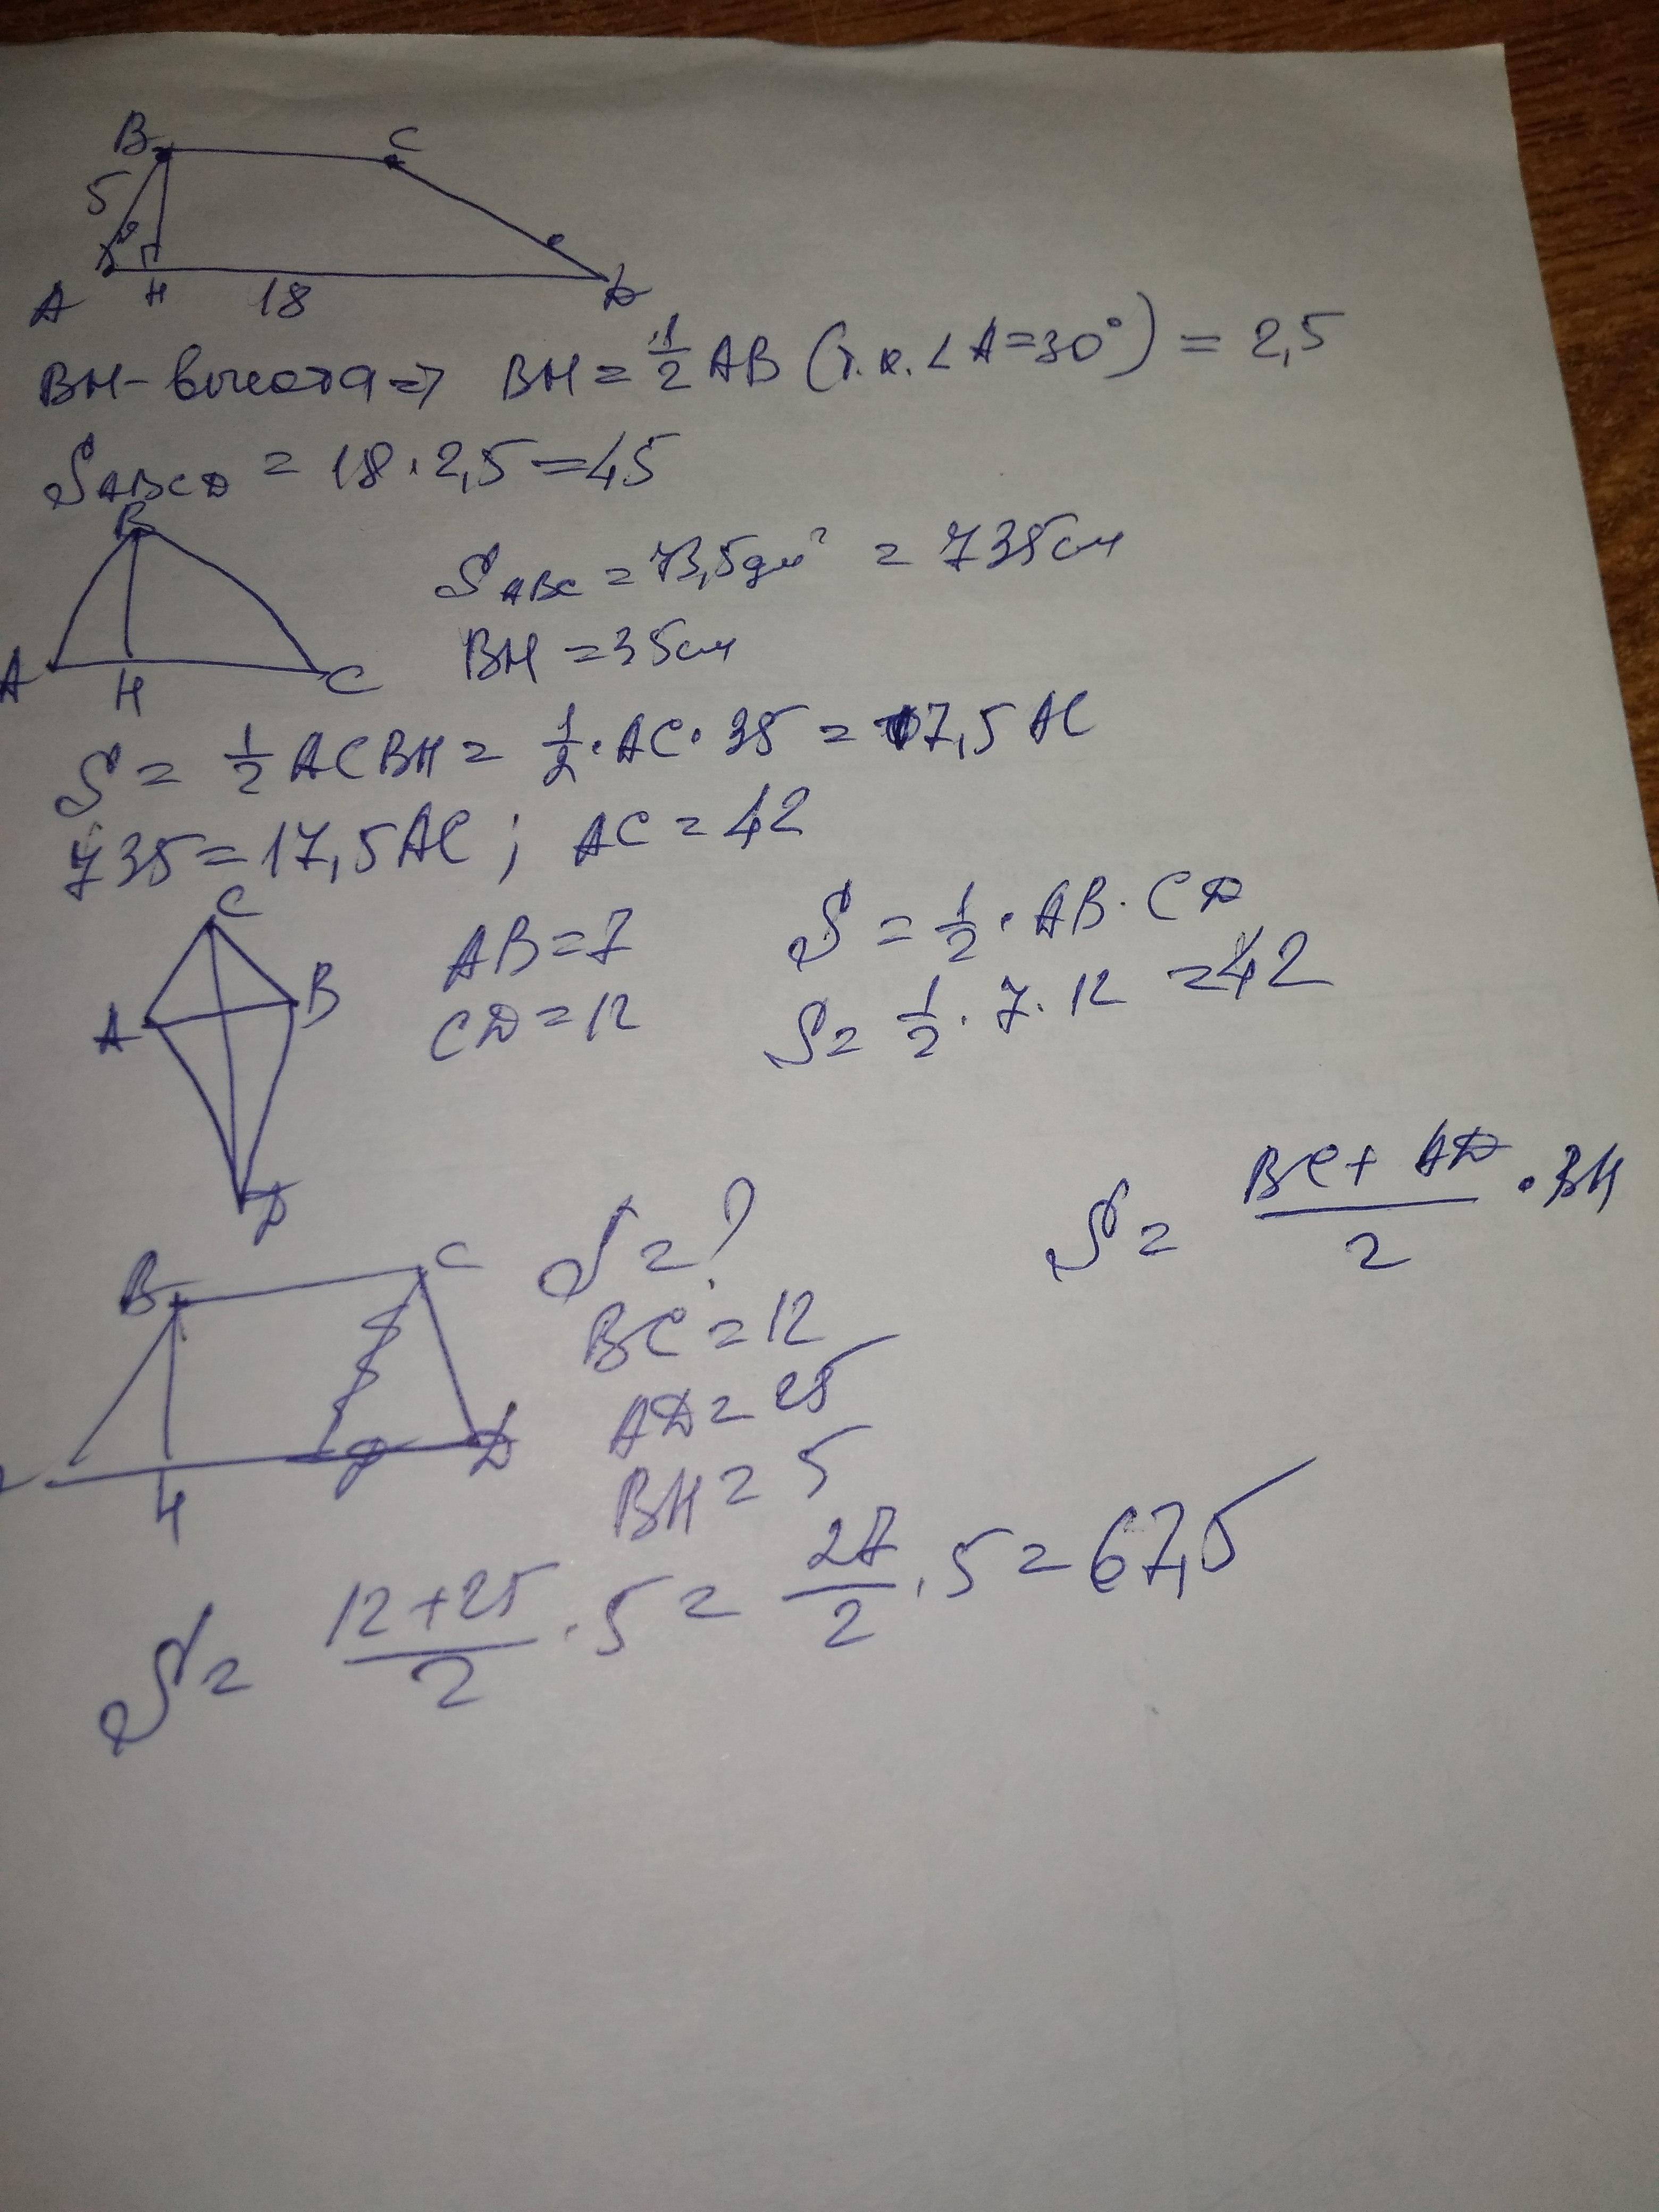 B C
5
A H 18 D
BH - высота => BH = 1/2 AB (т.к. ∠A=30°) = 2,5
S ABCD = 18 · 2,5 = 45
B
A H C
S ABC = 73,5дм² = 735см
BH = 35см
S = 1/2 AC BH = 1/2 · AC · 35 = 17,5 AC
735 = 17,5 AC ; AC = 42
C
A B
D
AB = 7
CD = 12
S = 1/2 · AB · CD
S = 1/2 · 7 · 12 = 42
B C
H D
S = ?
BC = 12
AD = 25
BH = 5
S = (BC + AD)/2 · BH
S = (12+25)/2 · 5 = 27/2 · 5 = 67,5